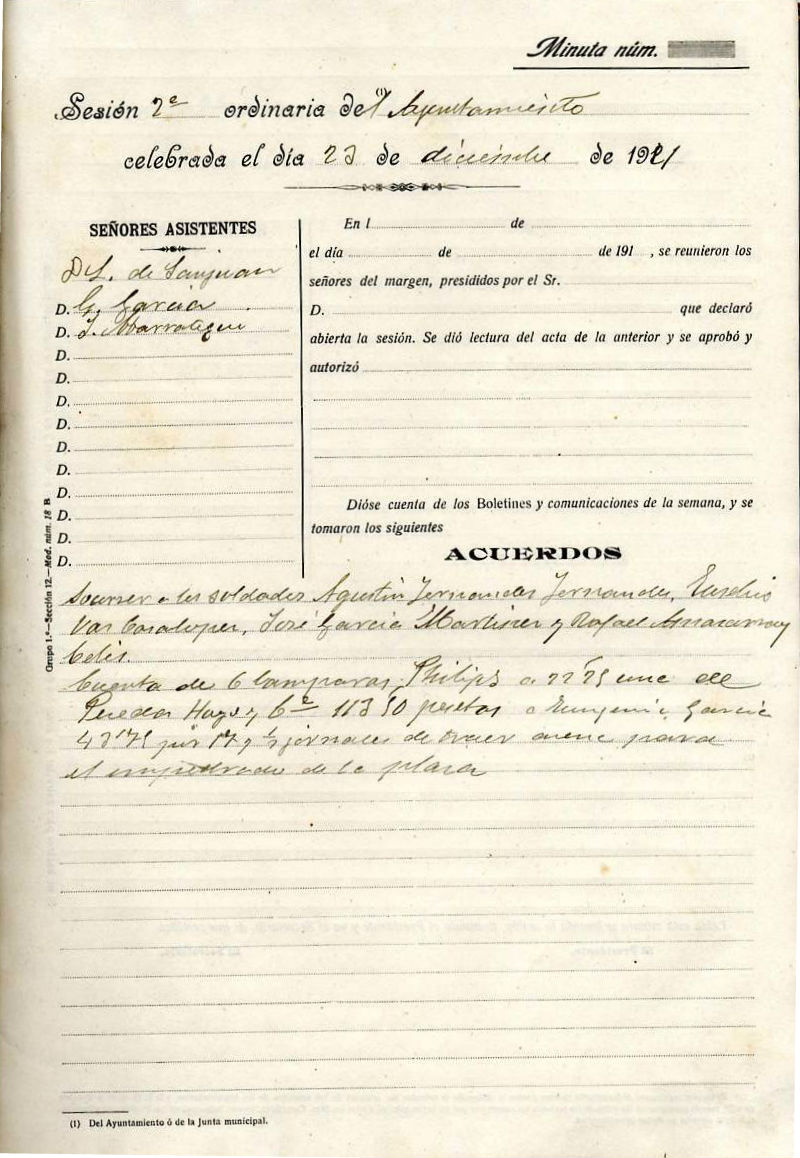 Minuta núm.
Sesión 2ª ordinaria del (1) Ayuntamiento
celebrada el día 23 de diciembre de 1921
SEÑORES ASISTENTES
D. L. de Sanjuan
D. G. Garcia
D. J.
D.
D.
D.
D.
D.
D.
D.
D.
D.
D.
En l de
el día de de 191 , se reunieron los
señores del margen, presididos por el Sr.
D. que declaró
abierta la sesión. Se dió lectura del acta de la anterior y se aprobó y
autorizó
Dióse cuenta de los Boletines y comunicaciones de la semana, y se
tomaron los siguientes
ACUERDOS
Socorrer a los soldados Agustín Fernandez Fernandez, Eusebio
Vas, José Garcia Martinez y Rafael
Celis.
Cuenta de 6 lamparas Philips a 22'75 una de
Paredes Hayo y Cª 113'50 pesetas a Eugenio Garcia
43'75 por 17 y ½ jornales de traer arena para
el empedrado de la plaza
Grupo 1.º—Sección 12.—Mod. núm. 18 B
(1) Del Ayuntamiento ó de la Junta municipal.